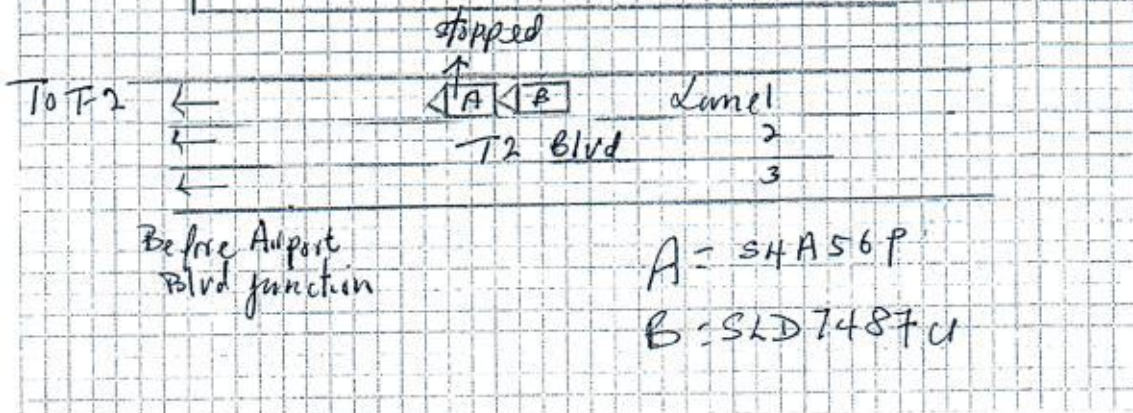 stopped
To T-2
A B Lane 1
T2 Blvd 2
3
Before Airport
Blvd junction
A = SHA56P
B : SLD7487U